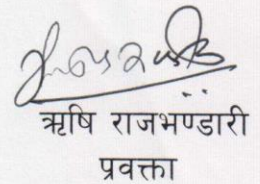 ऋषि राजभण्डारी
प्रवक्ता